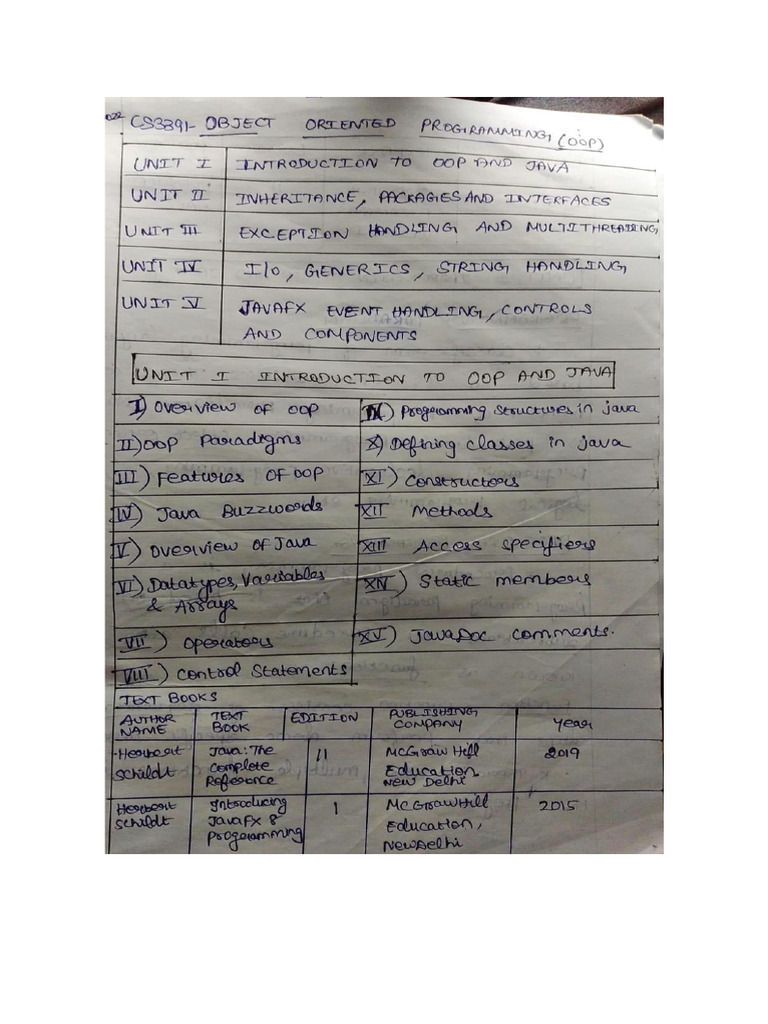 022 CS3391- OBJECT ORIENTED PROGRAMMING (OOP)
UNIT I INTRODUCTION TO OOP AND JAVA
UNIT II INHERITANCE, PACKAGES AND INTERFACES
UNIT III EXCEPTION HANDLING AND MULTITHREADING
UNIT IV I/O, GENERICS, STRING HANDLING
UNIT V JAVAFX EVENT HANDLING, CONTROLS
AND COMPONENTS
UNIT I INTRODUCTION TO OOP AND JAVA
I) Overview of OOP
II) OOP Paradigms
III) Features OF OOP
IV) Java Buzzwords
V) Overview of Java
VI) Datatypes, Variables
& Arrays
VII) Operators
VIII) Control Statements
IX) Programming Structures in java
X) Defining classes in java
XI) Constructors
XII Methods
XIII Access specifiers
XIV) Static members
XV) JavaDoc comments.
TEXT BOOKS
AUTHOR NAME TEXT BOOK EDITION PUBLISHING COMPANY year
Herbert Schildt Java: The Complete Reference 11 McGraw Hill Education New Delhi 2019
Herbert Schildt Introducing JavaFX 8 Programming 1 McGraw Hill Education, New Delhi 2015